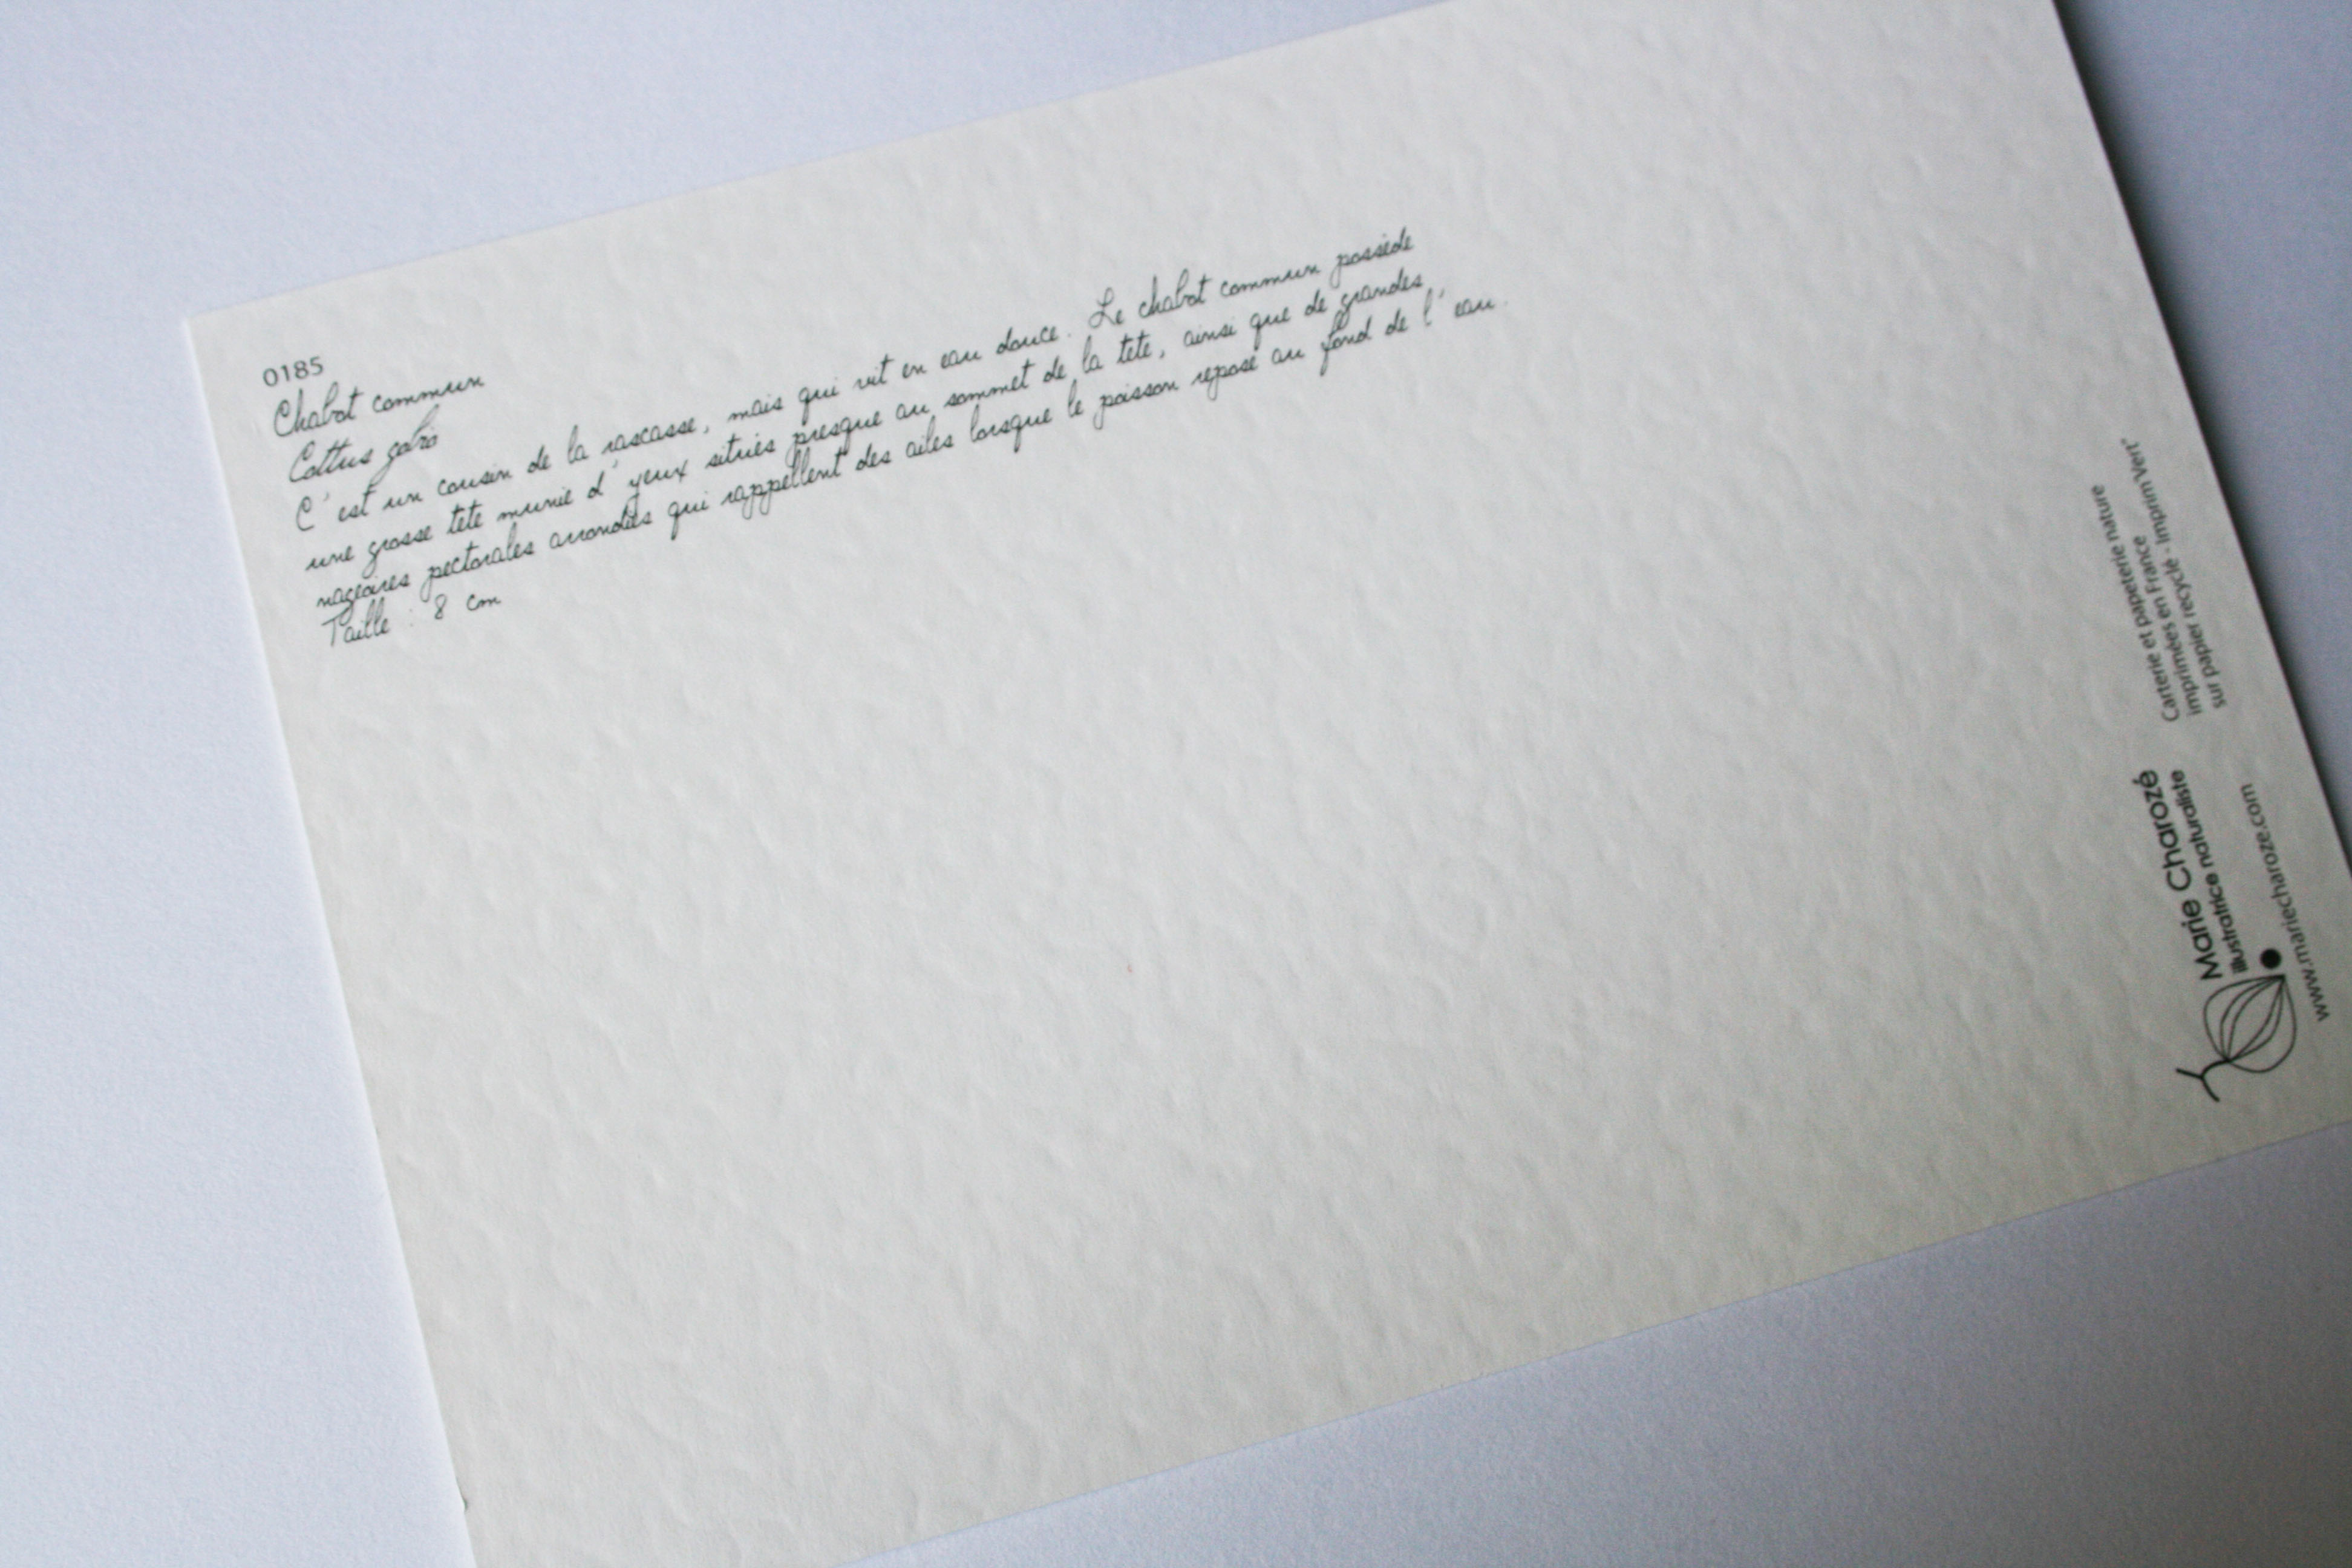 0185
Chabot commun
Cottus gobio
C'est un cousin de la rascasse, mais qui vit en eau douce. Le chabot commun possède
une grosse tête munie d'yeux situés presque au sommet de la tête, ainsi que de grandes
nageoires pectorales arrondies qui rappellent des ailes lorsque le poisson repose au fond de l'eau.
Taille : 8 cm
Marie Charozé
illustratrice naturaliste
www.mariecharoze.com
Carterie et papeterie nature
imprimées en France
sur papier recyclé - Imprim'Vert®